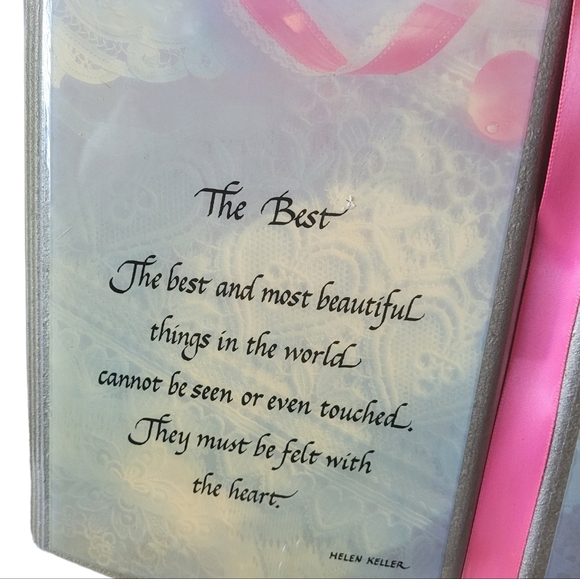 The Best
The best and most beautiful
things in the world
cannot be seen or even touched.
They must be felt with
the heart.
HELEN KELLER